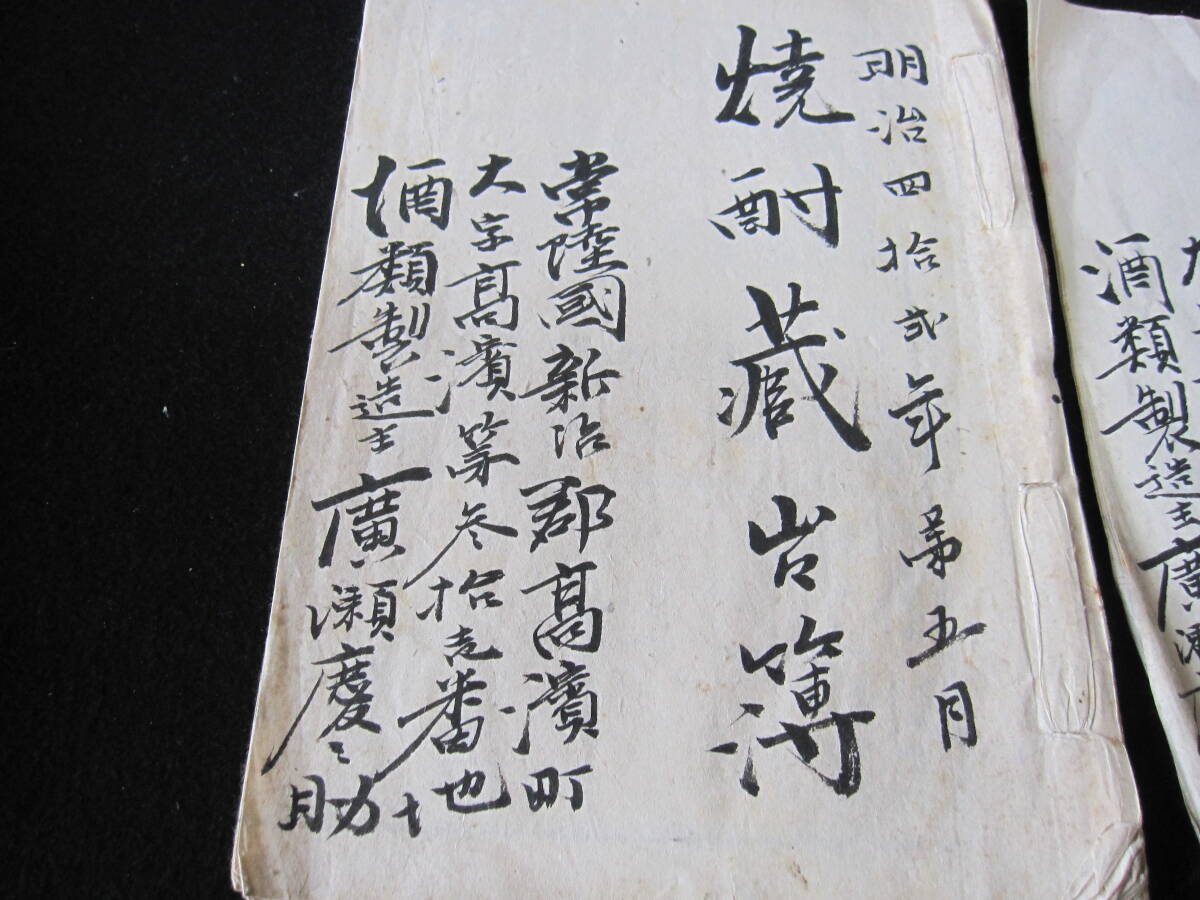 明治四拾弐年第五月
焼酎藏台簿
常陸國新治郡髙濱町
大字髙濱第参拾壱番地
酒類製造主廣瀬慶之助
酒類製造主廣瀬